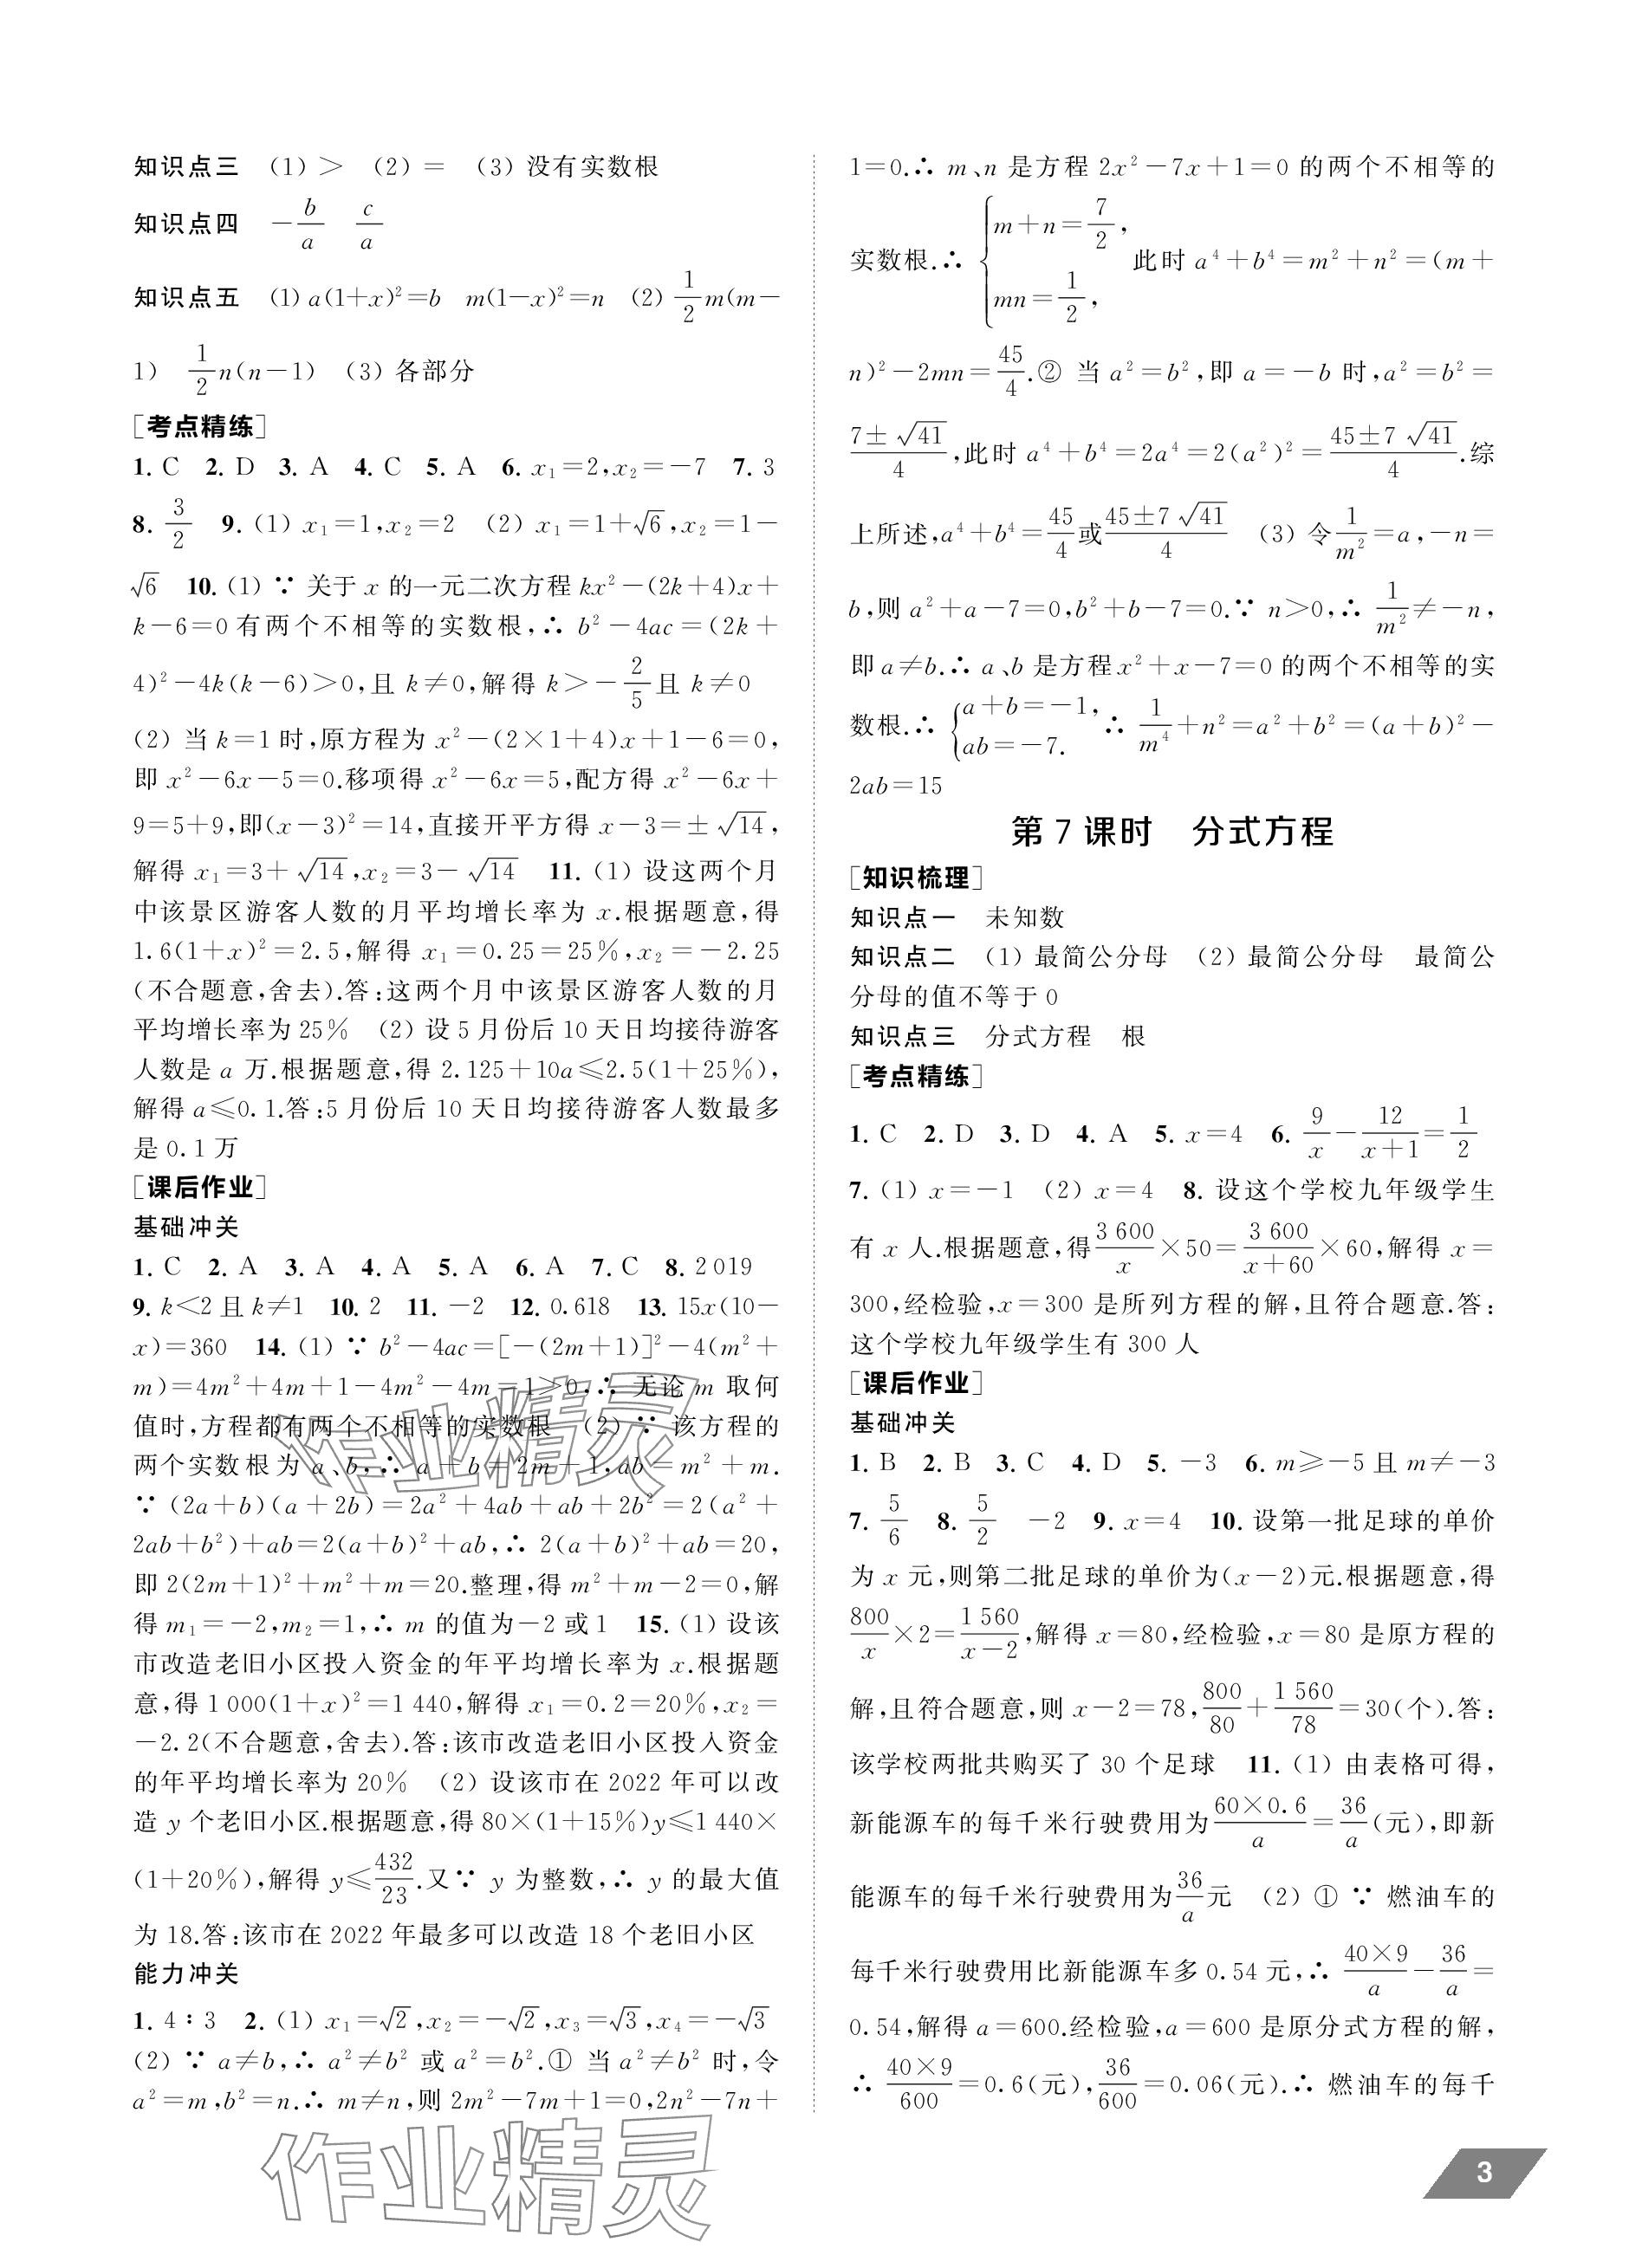 知识点三　(1) >　(2) =　(3) 没有实数根
知识点四　$-\frac{b}{a}$　$\frac{c}{a}$
知识点五　(1) $a(1+x)^2=b$　$m(1-x)^2=n$　(2) $\frac{1}{2}m(m-$
$1)$　$\frac{1}{2}n(n-1)$　(3) 各部分
[考点精练]
1. C　2. D　3. A　4. C　5. A　6. $x_1=2,x_2=-7$　7. 3
8. $\frac{3}{2}$　9. (1) $x_1=1,x_2=2$　(2) $x_1=1+\sqrt{6},x_2=1-$
$\sqrt{6}$　10. (1) ∵ 关于 $x$ 的一元二次方程 $kx^2-(2k+4)x+$
$k-6=0$ 有两个不相等的实数根,∴ $b^2-4ac=(2k+$
$4)^2-4k(k-6)>0$,且 $k≠0$,解得 $k>-\frac{2}{5}$且 $k≠0$
(2) 当 $k=1$ 时,原方程为 $x^2-(2×1+4)x+1-6=0$,
即 $x^2-6x-5=0$.移项得 $x^2-6x=5$,配方得 $x^2-6x+$
$9=5+9$,即$(x-3)^2=14$,直接开平方得 $x-3=±\sqrt{14}$,
解得 $x_1=3+\sqrt{14},x_2=3-\sqrt{14}$　11. (1) 设这两个月
中该景区游客人数的月平均增长率为 $x$.根据题意,得
$1.6(1+x)^2=2.5$,解得 $x_1=0.25=25\%,x_2=-2.25$
(不合题意,舍去).答:这两个月中该景区游客人数的月
平均增长率为 25%　(2) 设 5 月份后 10 天日均接待游客
人数是 $a$ 万.根据题意,得 $2.125+10a≤2.5(1+25\%)$,
解得 $a≤0.1$.答:5 月份后 10 天日均接待游客人数最多
是 0.1 万
[课后作业]
基础冲关
1. C　2. A　3. A　4. A　5. A　6. A　7. C　8. 2 019
9. $k<2$ 且 $k≠1$　10. 2　11. －2　12. 0.618　13. $15x(10-$
$x)=360$　14. (1) ∵ $b^2-4ac=[-(2m+1)]^2-4(m^2+$
$m)=4m^2+4m+1-4m^2-4m=1>0$,∴ 无论 $m$ 取何
值时,方程都有两个不相等的实数根　(2) ∵ 该方程的
两个实数根为 $a$、$b$,∴ $a+b=2m+1,ab=m^2+m$.
∵ $(2a+b)(a+2b)=2a^2+4ab+ab+2b^2=2(a^2+$
$2ab+b^2)+ab=2(a+b)^2+ab$,∴ $2(a+b)^2+ab=20$,
即 $2(2m+1)^2+m^2+m=20$.整理,得 $m^2+m-2=0$,解
得 $m_1=-2,m_2=1$,∴ $m$ 的值为－2 或 1　15. (1) 设该
市改造老旧小区投入资金的年平均增长率为 $x$.根据题
意,得 $1 000(1+x)^2=1 440$,解得 $x_1=0.2=20\%,x_2=$
$-2.2$(不合题意,舍去).答:该市改造老旧小区投入资金
的年平均增长率为 20%　(2) 设该市在 2022 年可以改
造 $y$ 个老旧小区.根据题意,得 $80×(1+15\%)y≤1 440×$
$(1+20\%)$,解得 $y≤\frac{432}{23}$.又∵ $y$ 为整数,∴ $y$ 的最大值
为 18.答:该市在 2022 年最多可以改造 18 个老旧小区
能力冲关
1. 4∶3　2. (1) $x_1=\sqrt{2},x_2=-\sqrt{2},x_3=\sqrt{3},x_4=-\sqrt{3}$
(2) ∵ $a≠b$,∴ $a^2≠b^2$ 或 $a^2=b^2$.① 当 $a^2≠b^2$ 时,令
$a^2=m,b^2=n$.∴ $m≠n$,则 $2m^2-7m+1=0,2n^2-7n+$
$1=0$.∴ $m$、$n$ 是方程 $2x^2-7x+1=0$ 的两个不相等的
实数根.∴ $\begin{cases}m+n=\frac{7}{2},\\mn=\frac{1}{2},\end{cases}$ 此时 $a^4+b^4=m^2+n^2=(m+$
$n)^2-2mn=\frac{45}{4}$.② 当 $a^2=b^2$,即 $a=-b$ 时,$a^2=b^2=$
$\frac{7±\sqrt{41}}{4}$,此时 $a^4+b^4=2a^4=2(a^2)^2=\frac{45±7\sqrt{41}}{4}$.综
上所述,$a^4+b^4=\frac{45}{4}$或$\frac{45±7\sqrt{41}}{4}$　(3) 令$\frac{1}{m^2}=a,-n=$
$b$,则 $a^2+a-7=0,b^2+b-7=0$.∵ $n>0$,∴ $\frac{1}{m^2}≠-n$,
即 $a≠b$.∴ $a$、$b$ 是方程 $x^2+x-7=0$ 的两个不相等的实
数根.∴ $\begin{cases}a+b=-1,\\ab=-7.\end{cases}$ ∴ $\frac{1}{m^4}+n^2=a^2+b^2=(a+b)^2-$
$2ab=15$
第 7 课时　分式方程
[知识梳理]
知识点一　未知数
知识点二　(1) 最简公分母　(2) 最简公分母　最简公
分母的值不等于 0
知识点三　分式方程　根
[考点精练]
1. C　2. D　3. D　4. A　5. $x=4$　6. $\frac{9}{x}-\frac{12}{x+1}=\frac{1}{2}$
7. (1) $x=-1$　(2) $x=4$　8. 设这个学校九年级学生
有 $x$ 人.根据题意,得$\frac{3 600}{x}×50=\frac{3 600}{x+60}×60$,解得 $x=$
300,经检验,$x=300$ 是所列方程的解,且符合题意.答:
这个学校九年级学生有 300 人
[课后作业]
基础冲关
1. B　2. B　3. C　4. D　5. －3　6. $m≥-5$ 且 $m≠-3$
7. $\frac{5}{6}$　8. $\frac{5}{2}$　－2　9. $x=4$　10. 设第一批足球的单价
为 $x$ 元,则第二批足球的单价为$(x-2)$元.根据题意,得
$\frac{800}{x}×2=\frac{1 560}{x-2}$,解得 $x=80$,经检验,$x=80$ 是原方程的
解,且符合题意,则 $x-2=78,\frac{800}{80}+\frac{1 560}{78}=30$(个).答:
该学校两批共购买了 30 个足球　11. (1) 由表格可得,
新能源车的每千米行驶费用为$\frac{60×0.6}{a}=\frac{36}{a}$(元),即新
能源车的每千米行驶费用为$\frac{36}{a}$元　(2) ① ∵ 燃油车的
每千米行驶费用比新能源车多 0.54 元,∴ $\frac{40×9}{a}-\frac{36}{a}=$
0.54,解得 $a=600$.经检验,$a=600$ 是原分式方程的解,
∴ $\frac{40×9}{600}=0.6$(元),$\frac{36}{600}=0.06$(元).∴ 燃油车的每千
作业精灵
作业精灵
3